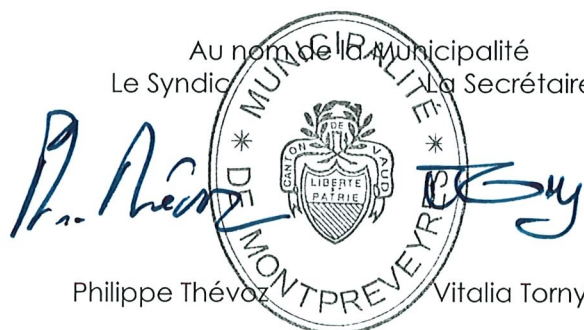 Au nom de la Municipalité
Le Syndic La Secrétaire
MUNICIPALITÉ
DE MONTPREVEYRES
CANTON DE VAUD
LIBERTE
ET
PATRIE
Ph. Thévoz
Philippe Thévoz Vitalia Torny